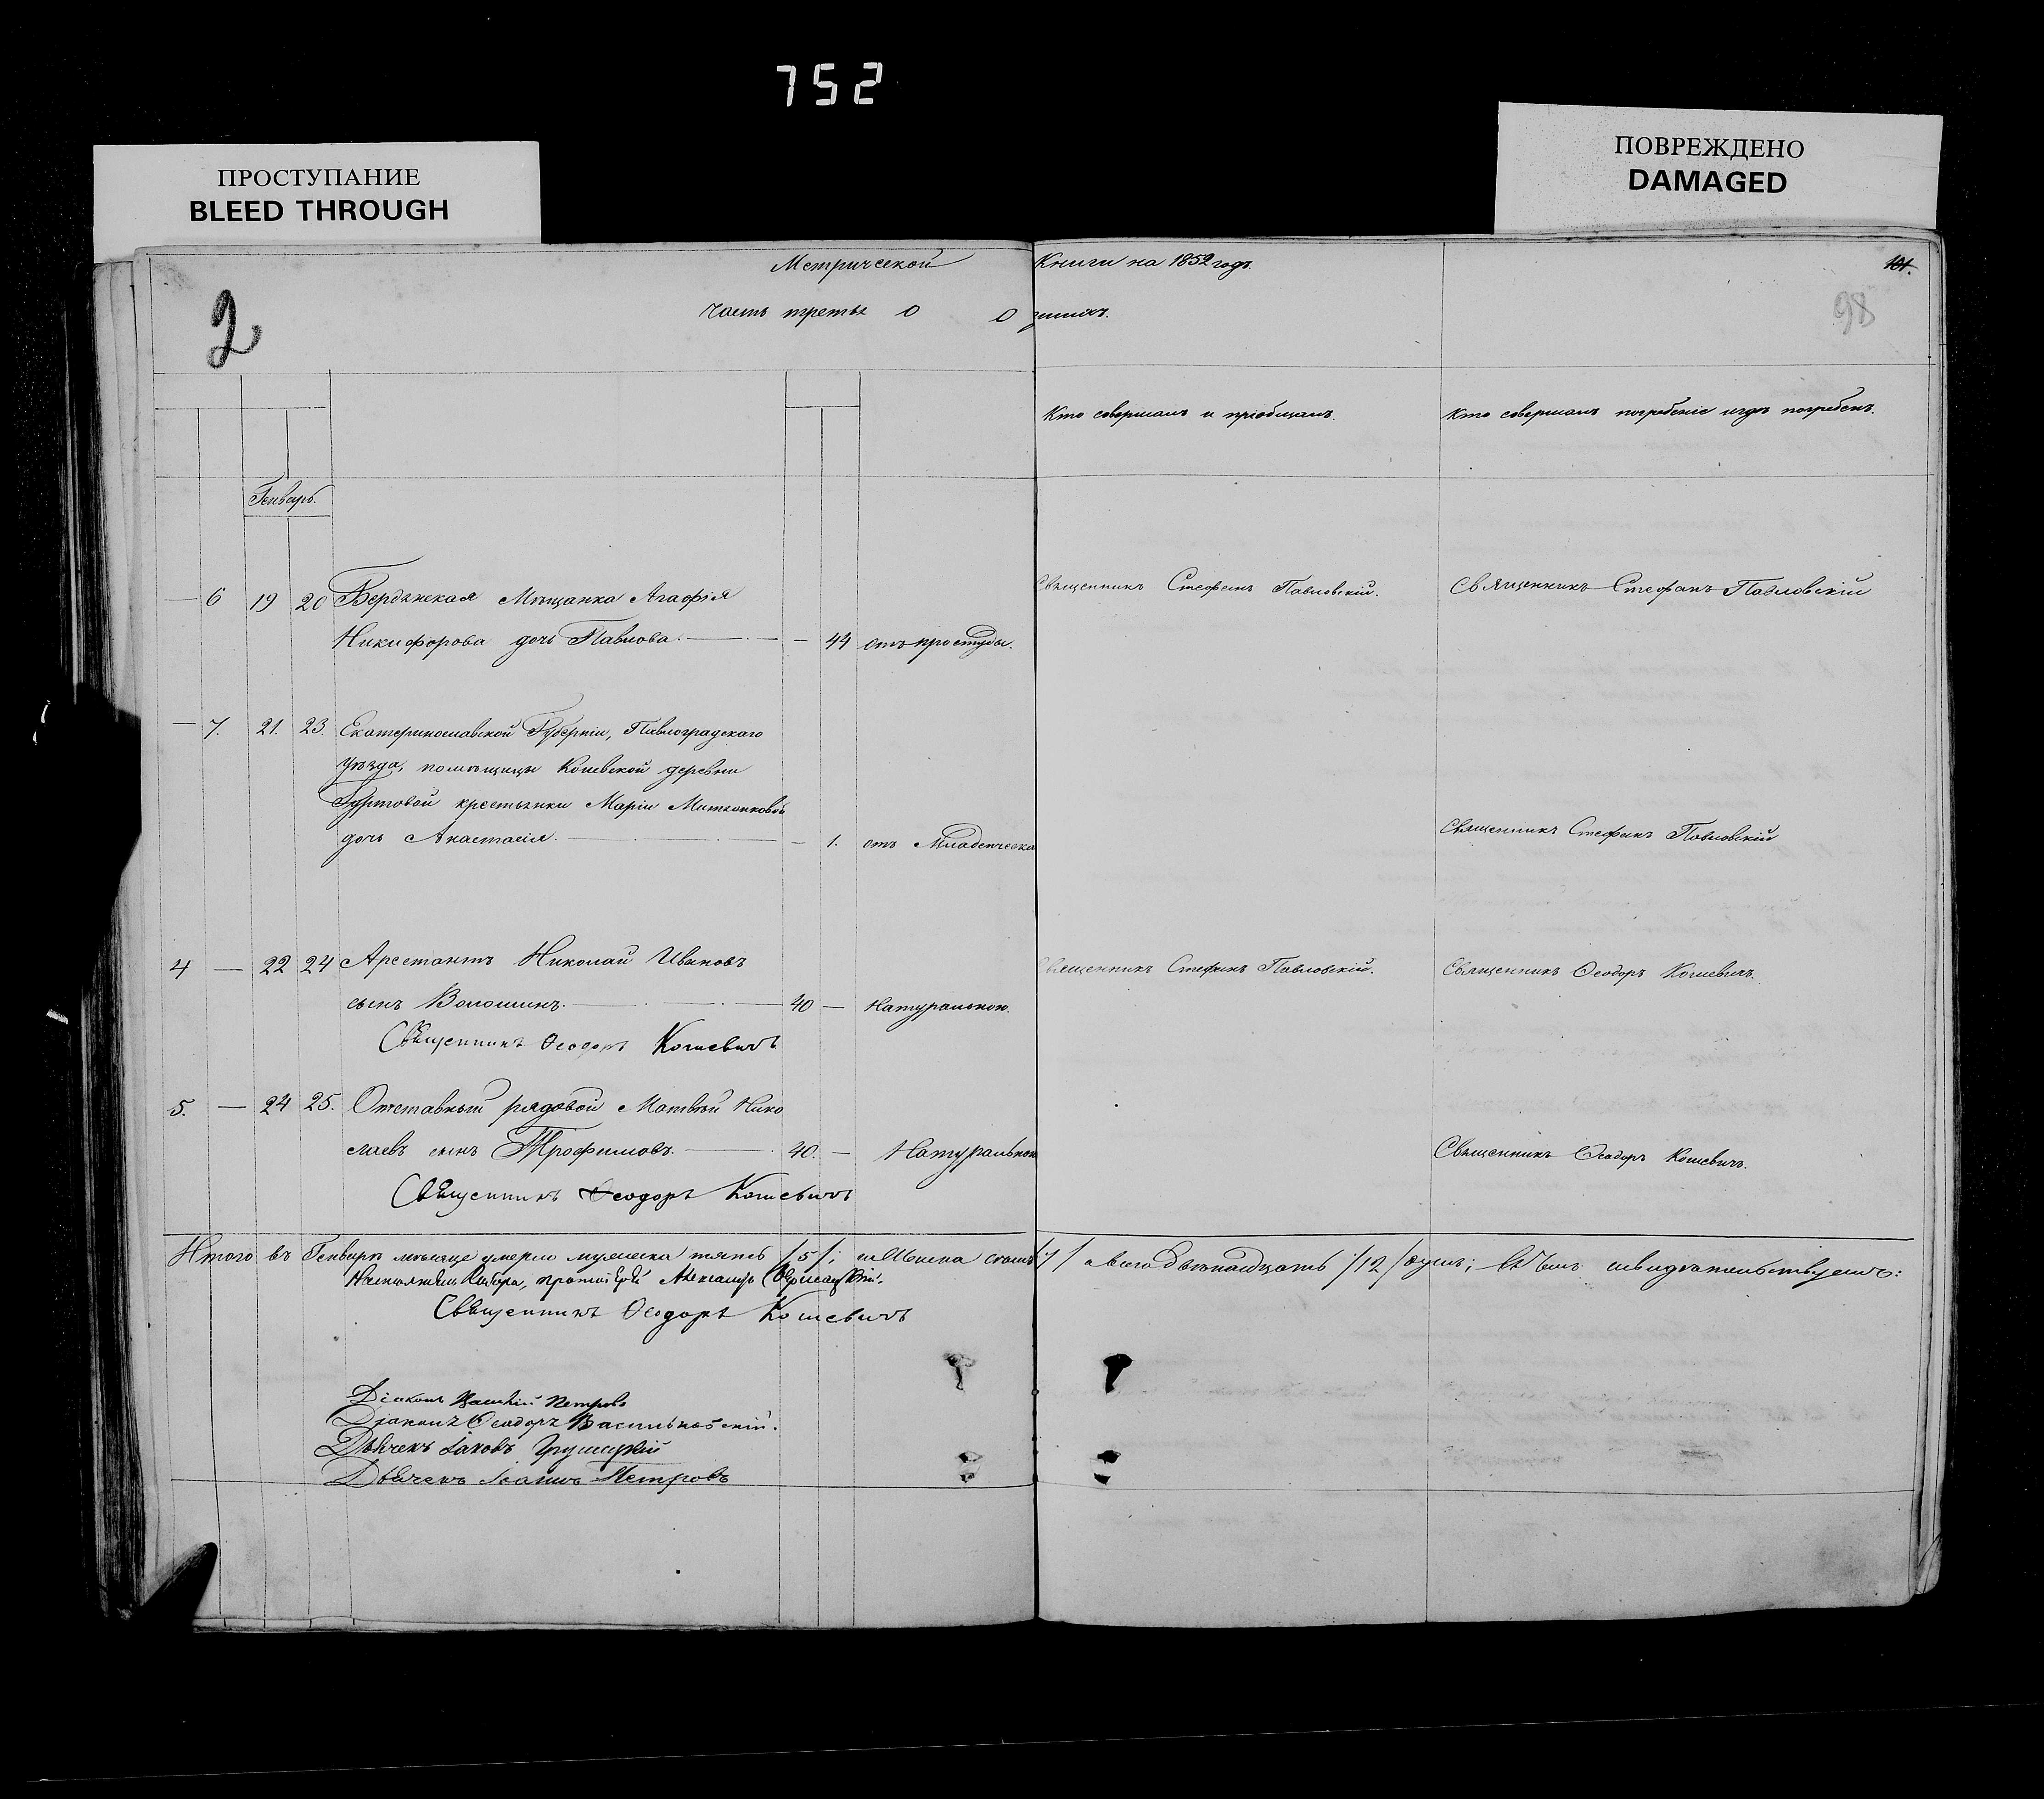 752
ПРОСТУПАНИЕ
BLEED THROUGH
ПОВРЕЖДЕНО
DAMAGED
Метрической Книги на 1852 годъ.
101.
2
Часть третья о
98
Кто совершалъ и пріобщалъ.
Кто совершалъ погребеніе и гдѣ погребенъ.
Генварь.
— 6 19 20 Бердянская Мѣщанка Агафія
Священникъ Стефанъ Павловскій. Священникъ Стефанъ Павловскій
Никифорова дочь Павлова. — 44 отъ простуды.
— 7. 21. 23. Екатеринославской Губерніи, Павлоградскаго
Уѣзда, помѣщицы Кошевской деревни
Гуртовой крестьянки Маріи
дочь Анастасія. — 1. отъ Младенческа
Священникъ Стефанъ Павловскій
4 — 22 24 Арестантъ Николай Ивановъ
Священникъ Стефанъ Павловскій. Священникъ Ѳеодоръ Кошевичъ.
сынъ Волошинъ. 40 — Натуральною.
Священникъ Ѳеодоръ Кошевичъ
5. — 24 25. Отставный рядовой Матвѣй Нико
лаевъ сынъ Трофимовъ. 40. — Натуральною
Священникъ Ѳеодоръ Кошевичъ.
Священникъ Ѳеодоръ Кошевичъ
Итого въ Генварѣ мѣсяцѣ умерло мужеска пять /5/; а женска семь /7/ а всего двѣнадцать /12/ душъ; въ чемъ и свидѣтельствуемъ:
Александръ
Священникъ Ѳеодоръ Кошевичъ
Діаконъ Василій Петровъ
Діаконъ Ѳеодоръ Васильковскій.
Дьячекъ Іаковъ
Дьячекъ Іоаннъ Петровъ